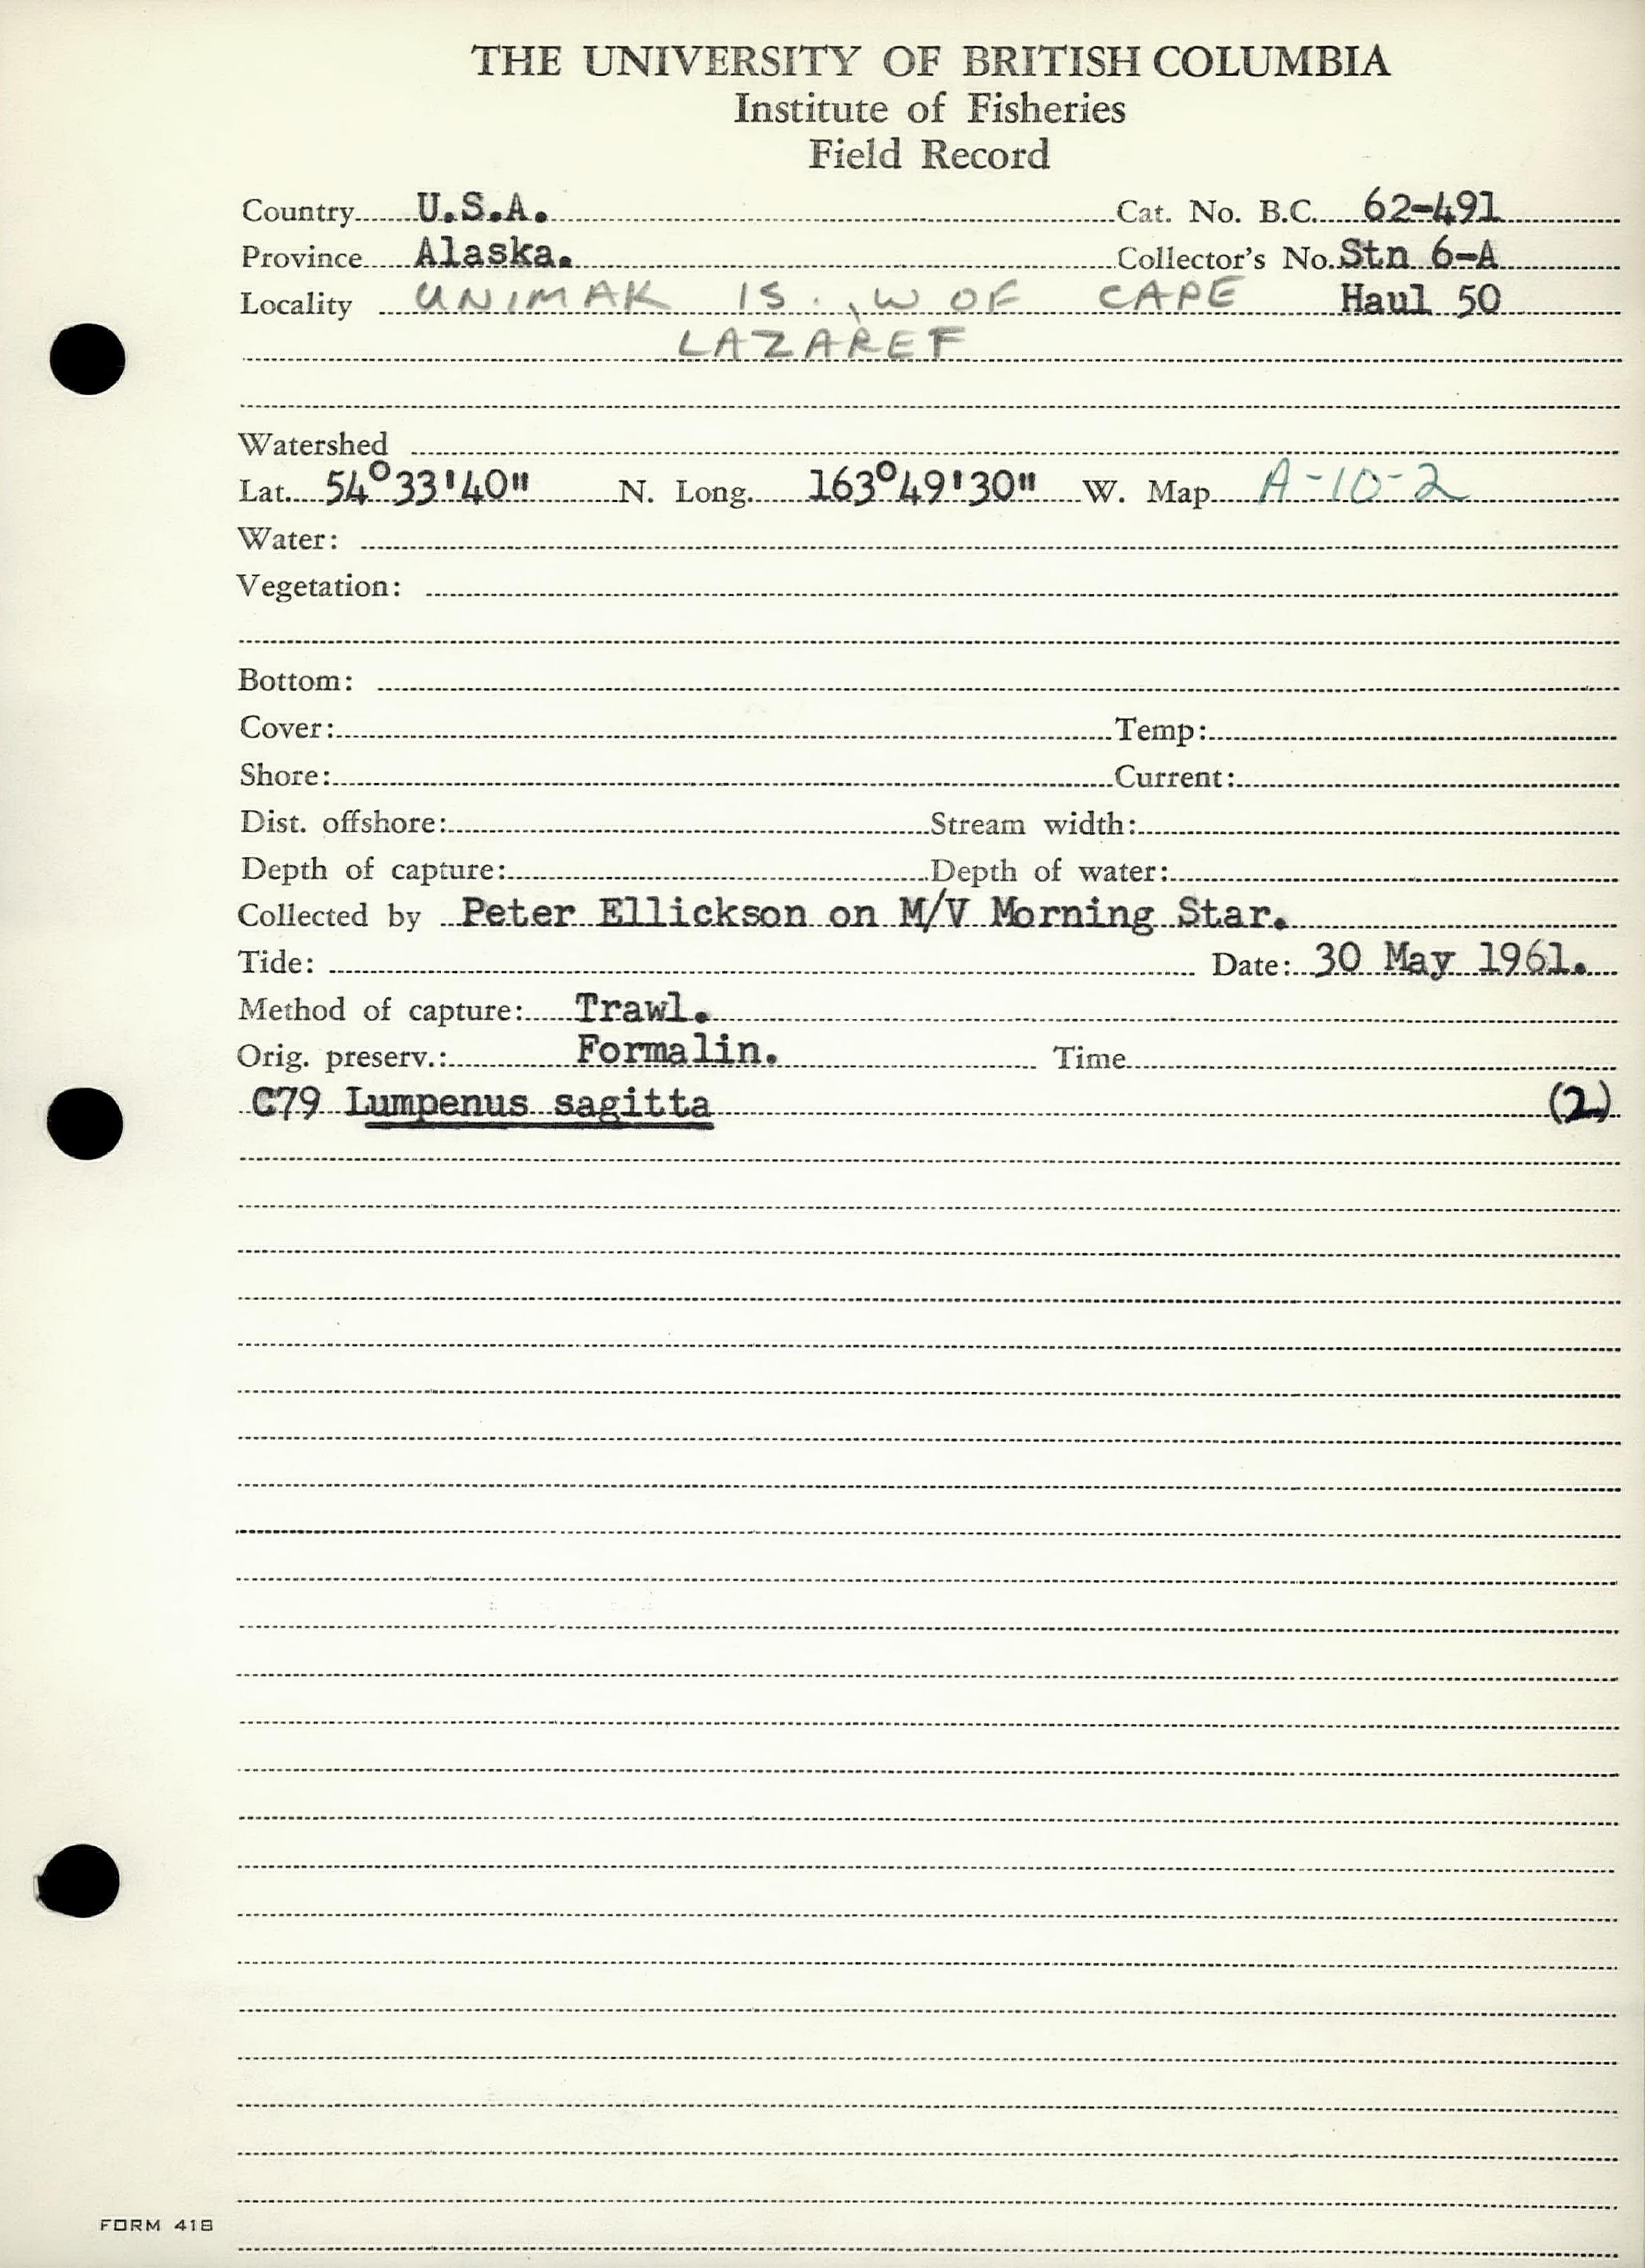 THE UNIVERSITY OF BRITISH COLUMBIA
Institute of Fisheries
Field Record
Country U.S.A. Cat. No. B.C. 62-491
Province Alaska. Collector's No. Stn 6-A
Locality UNIMAK IS., W OF CAPE Haul 50
LAZAREF
Watershed
Lat. 54°33'40" N. Long. 163°49'30" W. Map A-10-2
Water:
Vegetation:
Bottom:
Cover: Temp:
Shore: Current:
Dist. offshore: Stream width:
Depth of capture: Depth of water:
Collected by Peter Ellickson on M/V Morning Star.
Tide: Date: 30 May 1961.
Method of capture: Trawl.
Orig. preserv.: Formalin. Time
C79 Lumpenus sagitta (2)
FORM 418